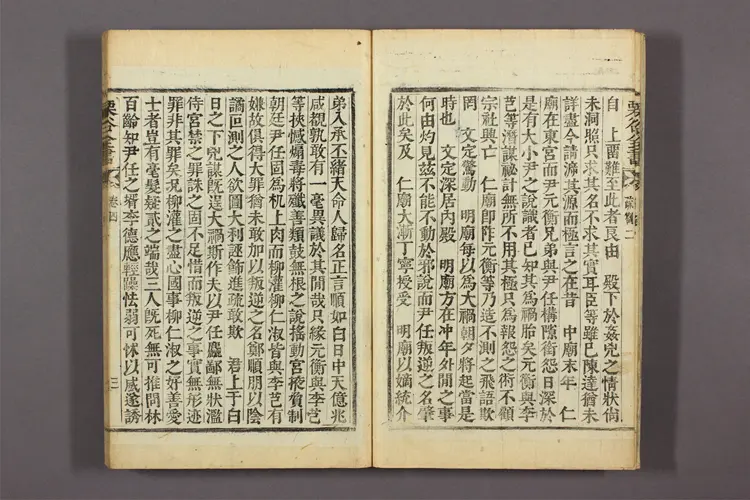 自 上留難至此者良由 殿下於姦兇之情狀尙
未洞照只求其名不求其實耳臣等雖已陳達猶未
詳盡今請溯其源而極言之在昔 中廟末年 仁
廟在東宮而尹元衡兄弟與尹任構隙銜怨日深於
是有大小尹之說識者已知其爲禍胎矣元衡與李
芑等潛謀祕計無所不用其極只爲報怨之術不顧
宗社興亡 仁廟卽阼元衡等乃造不測之飛語欺
罔 文定驚動 明廟每以爲大禍朝夕將起當是
時也 文定深居內殿 明廟方在冲年外間之事
何由灼見玆不能不動於邪說而尹任叛逆之名肇
於此矣及 仁廟大漸丁寧授受 明廟以嫡統介
弟入承丕緖天命人歸名正言順如白日中天億兆
咸覩孰敢有一毫異議於其間哉只緣元衡與李芑
等挾憾煽毒將殲善類鼓無根之說搖動宮掖箝制
朝廷尹任固爲机上肉而柳灌柳仁淑皆與李芑有
嫌故俱得大罪猶未敢加以叛逆之名鄭順朋以陰
譎叵測之人欲圖大利誣飾進疏敢欺 君上于白
日之下兇謀旣逞大禍斯作夫以尹任麤鄙無狀濫
侍宮禁之罪誅之固不足惜而叛逆之事實無形迹
罪非其罪矣况柳灌之盡心國事柳仁淑之好善愛
士者豈有毫髮疑貳之端哉三人旣死無可推問林
百齡知尹任之壻李德應輕躁怯弱可怵以威遂誘
栗谷全書
卷四
疏箚二
三